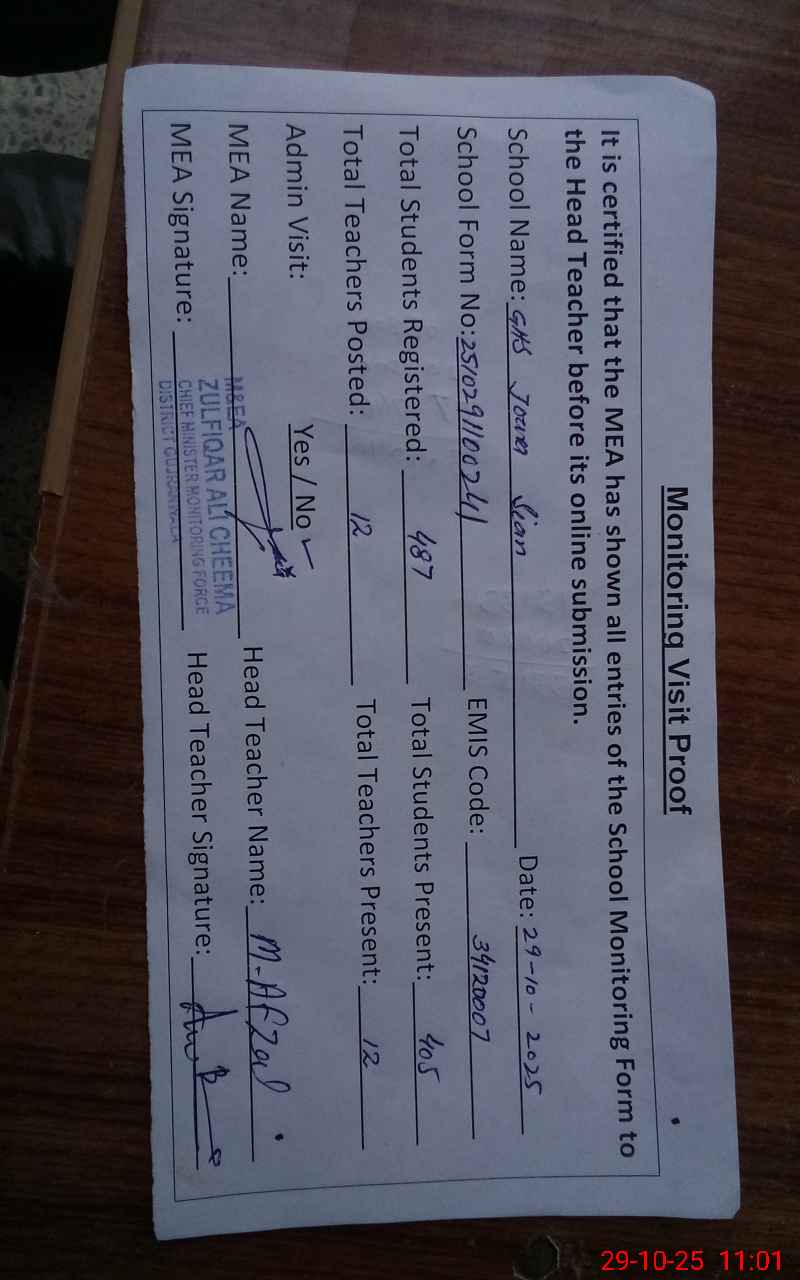 Monitoring Visit Proof
It is certified that the MEA has shown all entries of the School Monitoring Form to
the Head Teacher before its online submission.
School Name: GHS Joura Sian Date: 29-10-2025
School Form No: 2510291100241 EMIS Code: 34120007
Total Students Registered: 487 Total Students Present: 405
Total Teachers Posted: 12 Total Teachers Present: 12
Admin Visit: Yes / No ✓
MEA Name: Head Teacher Name: M-Afzal
MEA Signature: Head Teacher Signature:
M&EA
ZULFIQAR ALI CHEEMA
CHIEF MINISTER MONITORING FORCE
DISTRICT GUJRANWALA
29-10-25 11:01